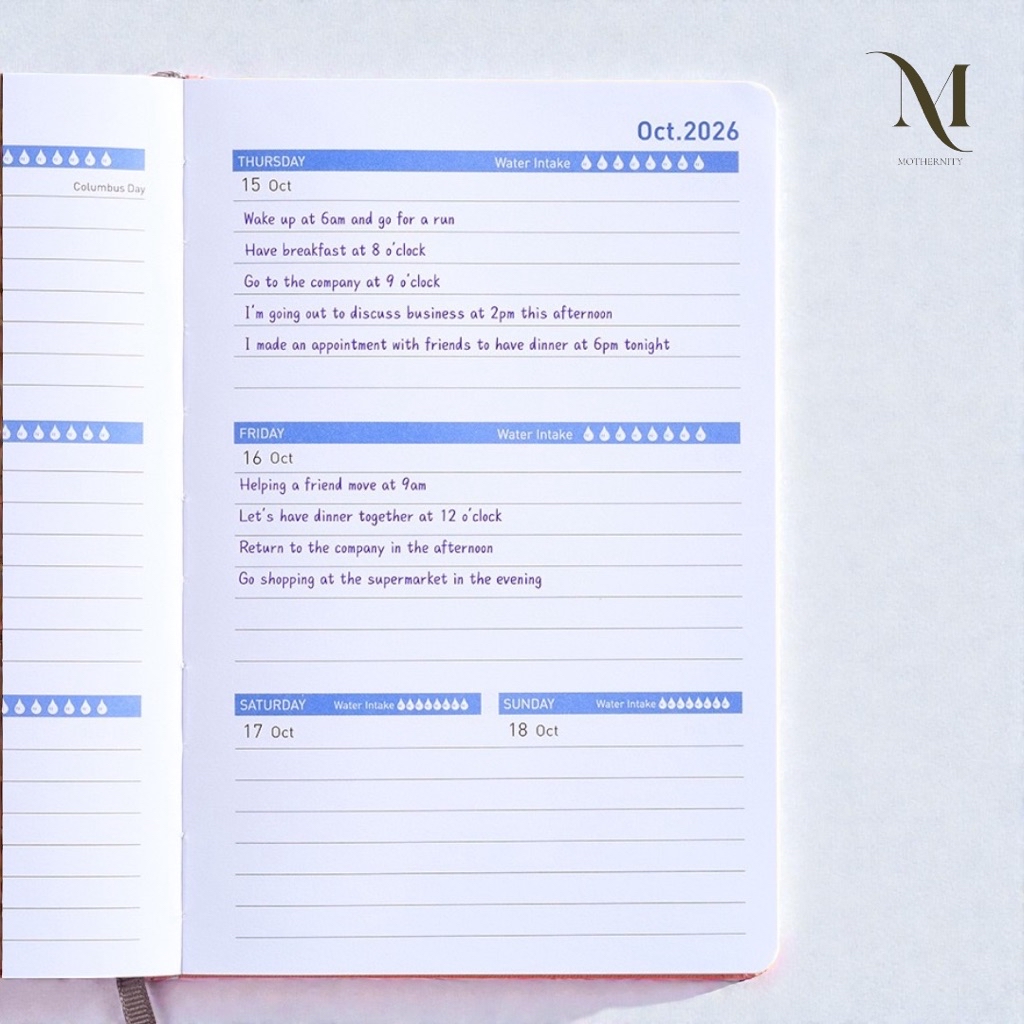 Oct.2026
M
MOTHERNITY
Columbus Day
THURSDAY Water Intake
15 Oct
Wake up at 6am and go for a run
Have breakfast at 8 o'clock
Go to the company at 9 o'clock
I'm going out to discuss business at 2pm this afternoon
I made an appointment with friends to have dinner at 6pm tonight
FRIDAY Water Intake
16 Oct
Helping a friend move at 9am
Let's have dinner together at 12 o'clock
Return to the company in the afternoon
Go shopping at the supermarket in the evening
SATURDAY Water Intake
17 Oct
SUNDAY Water Intake
18 Oct